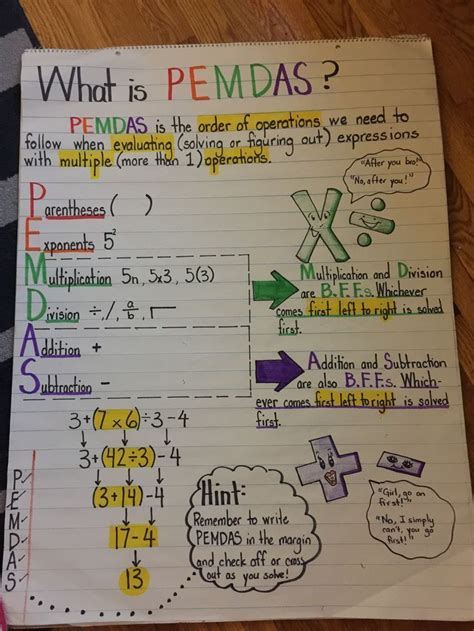 What is PEMDAS?
PEMDAS is the order of operations we need to
follow when evaluating (solving or figuring out) expressions
with multiple (more than 1) operations.
"After you bro!"
"No, after you!"
Parentheses ( )
Exponents 5²
Multiplication 5n, 5x3, 5(3)
Division ÷, /, a/b, ⟌
Addition +
Subtraction -
Multiplication and Division
are B.F.F.s. Whichever
comes first left to right is solved
first.
Addition and Subtraction
are also B.F.F.s. Which-
ever comes first left to right is solved
first.
3+(7x6)÷3-4
3+(42÷3)-4
(3+14)-4
17-4
13
PEMDAS
Hint:
Remember to write
PEMDAS in the margin
and check off or cross
out as you solve!
"Girl, go on
first!"
"No, I simply
can't, you go
first!"